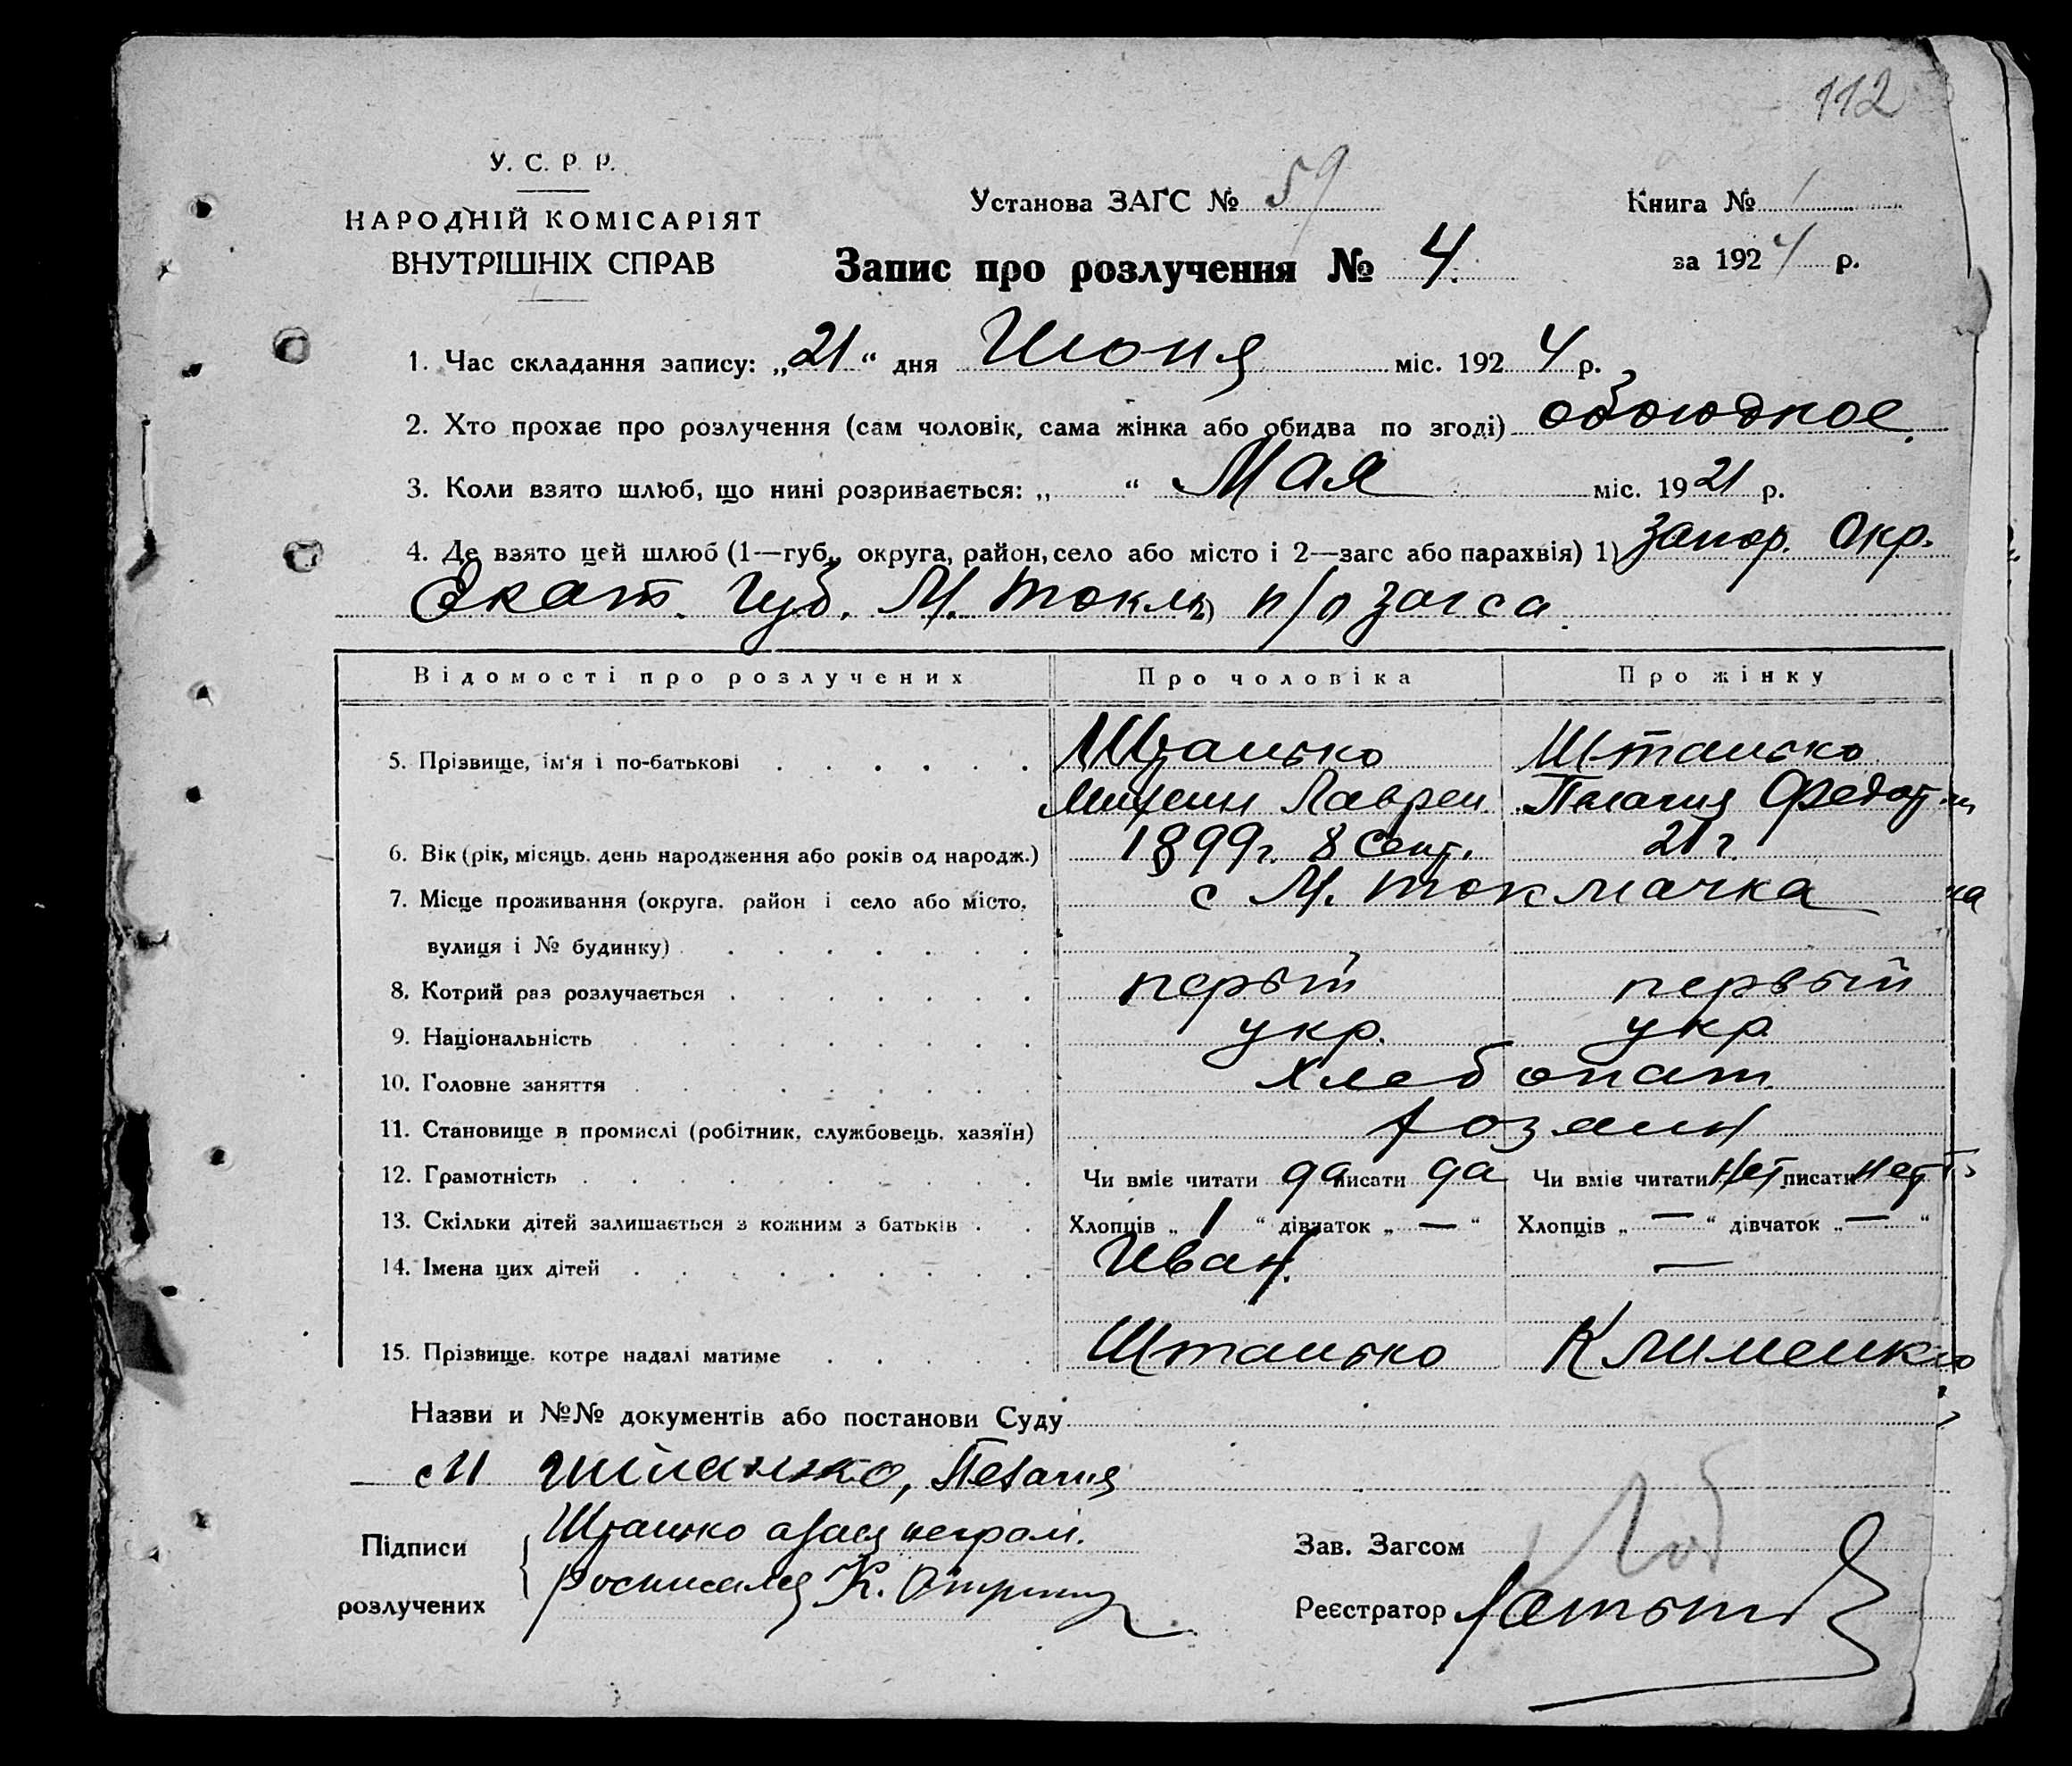 112
У. С. Р. Р.
НАРОДНІЙ КОМІСАРІЯТ
ВНУТРІШНІХ СПРАВ
Установа ЗАГС № 59
Книга № 1
Запис про розлучення № 4.
за 1924 р.
1. Час складання запису: „21“ дня Июня міс. 1924 р.
2. Хто прохає про розлучення (сам чоловік, сама жінка або обидва по згоді) обоюдное.
3. Коли взято шлюб, що нині розривається: „ “ Мая міс. 1921 р.
4. Де взято цей шлюб (1—губ., округа, район, село або місто і 2—загс або парахвія) 1) Запор. Окр.
Екат. Губ. М. Токм 2) п/о загса
Відомості про розлучених Про чоловіка Про жінку
5. Прізвище, ім'я і по-батькові Штанько Штанько
Лаврен Пелагия Федот
6. Вік (рік, місяць, день народження або років од народж.) 1899 г. 8 Сент. 21 г.
7. Місце проживання (округа, район і село або місто, с М. Токмачка
вулиця і № будинку)
8. Котрий раз розлучається перый первый
9. Національність укр. укр
10. Головне заняття хлебопаш.
11. Становище в промислі (робітник, службовець, хазяїн) хозяин
12. Грамотність Чи вміє читати да писати да Чи вміє читати нет писати нет
13. Скільки дітей залишається з кожним з батьків Хлопців „ 1 “ дівчаток „ — “ Хлопців „ — “ дівчаток „ — “
14. Імена цих дітей Иван. —
15. Прізвище, котре надалі матиме Штанько Клименко
Назви и №№ документів або постанови Суду
Штанько, Пелагия
Підписи Штанько а за нея неграм.
розлучених росписался К.
Зав. Загсом
Реєстратор